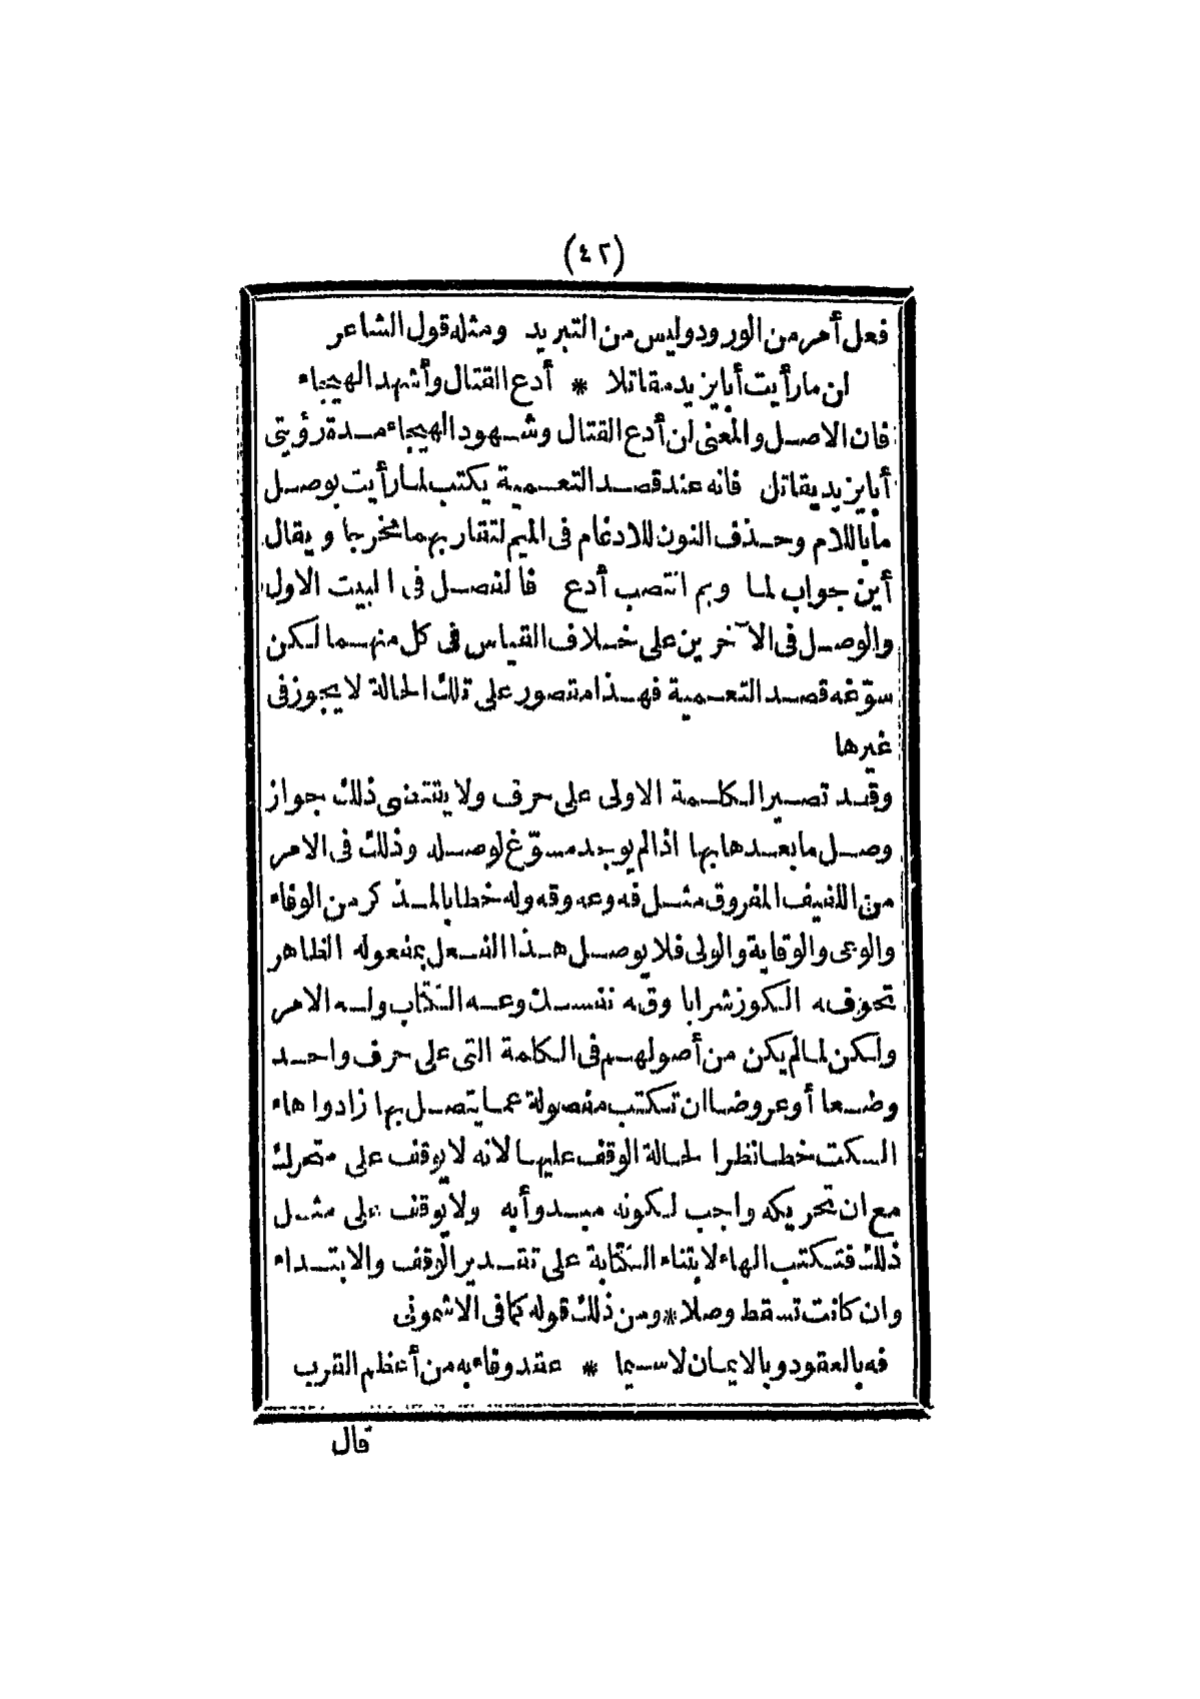 (٤٢)
فعل أمر من الورود وليس من التبريد ومثله قول الشاعر
لن ما رأيت أبا يزيد مقاتلا * أدع القتال وأشهد الهيجاء
فان الاصل والمعنى لن أدع القتال وشهود الهيجاء مدة رؤيتى
أبا يزيد يقاتل فانه عند قصد التعمية يكتب لما رأيت بوصل
ما باللام وحذف النون للادغام فى الميم لتقاربهما مخرجا ويقال
أين جواب لما وبم انتصب أدع فالفصل فى البيت الاول
والوصل فى الآخرين على خلاف القياس فى كل منهما لكن
سوّغه قصد التعمية فهذا متصور على تلك الحالة لا يجوز فى
غيرها
وقد تصير الكلمة الاولى على حرف ولا يقتضى ذلك جواز
وصل ما بعدها بها اذا لم يوجد مسوّغ لوصله وذلك فى الامر
من اللفيف المفروق مثل فه وعه وقه وله خطابا لمذكر من الوفاء
والوعى والوقاية والولى فلا يوصل هذا الفعل بمفعوله الظاهر
نحو فه الكوز شرابا وقه نفسك وعه الكتاب وله الامر
ولكن لما لم يكن من أصولهم فى الكلمة التى على حرف واحد
وضعا أو عروضا ان تكتب مفصولة عما يتصل بها زادوا هاء
السكت خطا نظرا لحالة الوقف عليها لانه لا يوقف على متحرك
مع ان تحريكه واجب لكونه مبدوأ به ولا يوقف على مثل
ذلك فتكتب الهاء لابتناء الكتابة على تقدير الوقف والابتداء
وان كانت تسقط وصلا * ومن ذلك قوله كما فى الاشمونى
فه بالعقود وبالايمان لا سيما * عقد وفاء به من أعظم القرب
قال